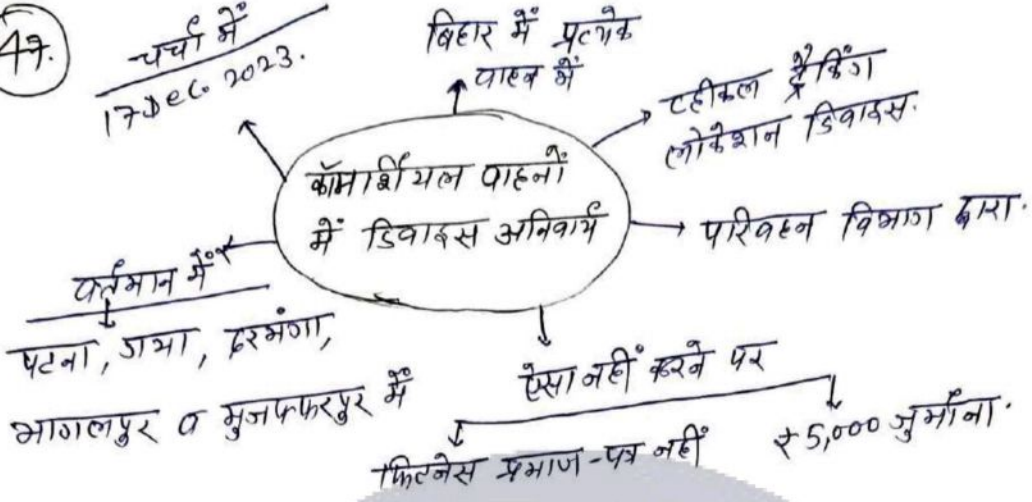 47.
चर्चा में
17 Dec. 2023.
बिहार में प्रत्येक
वाहन में
व्हीकल ट्रैकिंग
लोकेशन डिवाइस.
कॉमार्शियल वाहनों
में डिवाइस अनिवार्य
परिवहन विभाग द्वारा.
वर्तमान में
पटना, गया, दरभंगा,
भागलपुर व मुजफ्फरपुर में
ऐसा नहीं करने पर
फिटनेस प्रमाण-पत्र नहीं
₹5,000 जुर्माना.